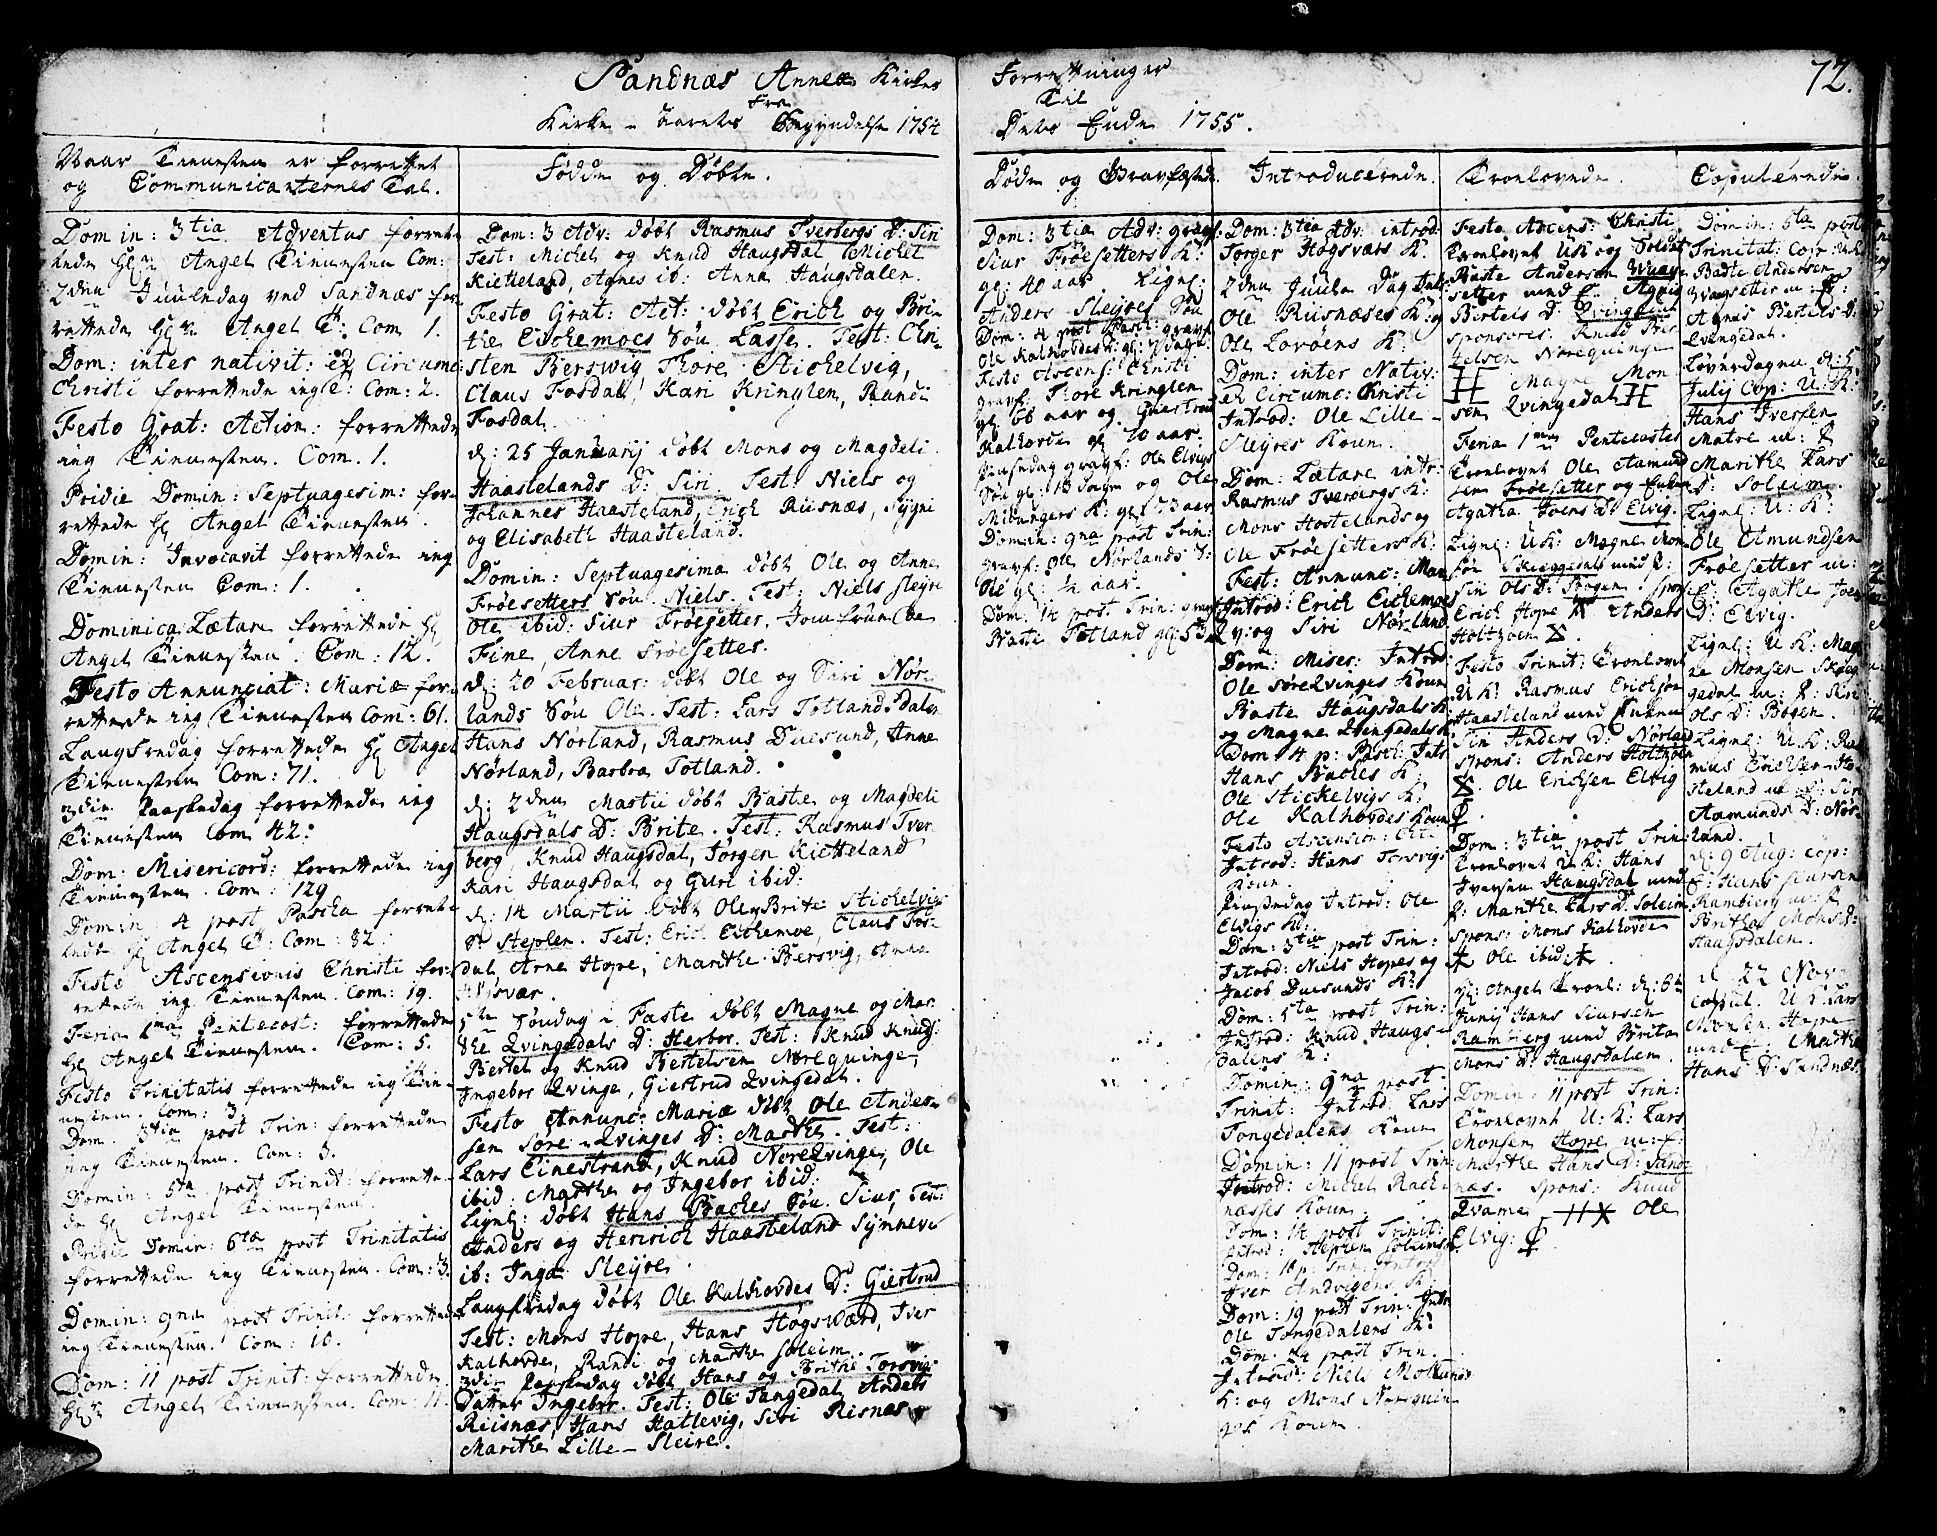 Sandnæs Annex Kirkes Forrettninger
Fra Til
Kirke-Aarets Begyndelse 1754 Dets Ende 1755.
72.
Naar Tienesten er forrettet
og Communicanternes Tal.
Dom in: 3tia Adventus forret-
tede Hr Angel Tienesten Com:
2den Juuledag ved Sandnæs for-
rettede Hr Angel T: Com 1.
Dom: inter nativit: et Circumc:
Christi forrettede ieg T: Com: 2.
Festo Grat: Action: forrettede
ieg Tienesten. Com. 1.
Pridie Domin: Septuagesim: for-
rettede Hr Angel Tienesten.
Domin: Invocavit forrettede ieg
Tienesten Com: 1.
Dominica Lætare forrettede Hr
Angel Tienesten. Com: 12.
Festo Annunciat: Mariæ for-
rettede ieg Tienesten Com: 61.
Langfredag forrettede Hr Angel
Tienesten Com: 71.
3die Paaskedag forrettede ieg
Tienesten Com 42:
Dom: Misericord: forrettede ieg
Tienesten. Com: 129
Domin: 4 post Pascha forret-
tede Hr Angel T: Com: 82.
Festo Ascensionis Christi for-
rettede ieg Tienesten. Com: 19.
Feria 1ma Pentecost: forrettede
Hr Angel Tienesten. Com: 5.
Festo Trinitatis forrettede ieg Tie-
nesten. Com: 3.
Dom: 3tia post Trin: forrettede
ieg Tienesten. Com: 3.
Domin: 5ta post Trinit: forrette-
de Hr Angel Tienesten.
Pridie Domin: 6ta post Trinitatis
forrettede ieg Tienesten. Com: 3.
Domin: 9na post Trinit: forrettede
ieg Tienesten. Com: 10.
Dom: 11 post Trinit: forrettede
Hr Angel Tienesten. Com: 11.
Fødde og Døbte.
Dom: 3 Adv: døbt Rasmus Tverbergs D: Siri
Test: Michel og Knud Haugsdal Michel
Kietteland, Agnes ib: Anna Haugsdalen.
Festo Grat: Act: døbt Erich og Bri-
the Eichemoes Søn Lasse. Test: Chri-
sten Berswig Thore Stichelvig,
Claus Fosdal, Kari Kringlen, Randi
Fosdal.
d: 25 Januarij døbt Mons og Magdeli
Haastelands D: Siri. Test: Niels og
Johannes Haasteland, Erich Riisnæs, Sygni
og Elisabeth Haasteland.
Domin: Septuagesima døbt Ole og Anne
Frøesetters Søn Niels. Test: Niels Sleyre
Ole ibid: Siur Frøesetter, Jomfrue De
Fine, Anne Frøesetter.
d: 20 Februar: døbt Ole og Siri Nør-
lands Søn Ole. Test: Lars Totlandsdalen
Hans Nørland, Rasmus Duesund, Anne
Nørland, Barbra Totland.
d: 2den Martii døbt Baste og Magdeli
Haugsdals D: Brite. Test: Rasmus Tver
berg, Knud Haugsdal, Jørgen Kietteland
Kari Haugsdal og Guri ibid:
d: 14 Martii døbt Ole og Brite Stichelvig
S: Stephen. Test: Erich Eichemoe, Claus Fos-
dal, Arne Hope, Marithe Bersvig, Anne
5te Søndag i Faste døbt Magne og Mar
the Qvingedals D: Herbor. Test: Knud Knud:
Bertel og Knud Bertelsen Nøreqvinge,
Ingebor Qvinge, Giertrud Qvingedal.
Festo Annunc: Mariæ døbt Ole Ander-
sen Søre-Qvinges D: Marthe. Test:
Lars Einestrand, Knud NøreQvinge, Ole
ibid: Marthe og Ingebor ibid:
Ligel: døbt Hans Baches Søn Siur, Test:
Anders og Henrich Haasteland Synneve
ib: Inga Sleyre.
Langfredag døbt Ole Kalhovdes D: Giertrud
Test: Mons Hope, Hans Høgswærd, Iver
Kalhovde, Randi og Marthe Soleim.
3die Paaskedag døbt Hans og Brithe Torsvigs
Datter Ingebor. Test: Ole Tangedal Anders
Riisnæs, Hans Hatlevig, Siri Risnæs
Marithe Lille-Sleire.
Døde og Gravfæstede.
Dom: 3tia Adv: gravf:
Siur Frøesetters K:
gl: 40 aar Ligel:
Anders Sleyres Søn
Dom: 4 post Pasch: gravf
Ole Kalhovdes
Festo Ascens: Christi
gravf. Tiore Kringlen
gl: 66 aar og Giertrud
Kalhovde gl 70 aar.
Pinsedag gravf: Ole Elvigs
Søn gl: og Ole
Mibungers K: gl: 73 aar
Domin: 9na post Trin:
gravf: Ole Nørlands S:
Ole gl: 1/2 aar.
Dom: 14 post Trin: gravf
Baste Totland gl: 53
Introducerede.
Dom: 3tia Adv: introd:
Jørger Høgsværs K:
2den Juule Dag Intr:
Ole Riisnæses K: og
Ole Lovøens K:
Dom: inter Nativ:
et Circumc: Christi
Introd: Ole Lille-
Sleyres Kone.
Dom: Lætare intr:
Rasmus Tverbergs K:
Mons Hostelands og
Ole Frøesetters K:
Fest: Annunc: Mar
Introd: Erich Eichemoes
K: og Siri Nørland
Dom: Miser: Introd
Ole SøreQvinges Kone
Baste Haugsdals K:
og Magne Qvingedals K:
Dom 4 p: Pasch: Intr
Hans Baches K:
Ole Stickelvigs K:
Ole Kalhovdes Kone
Festo Ascension: Chri
Introd: Hans Torsvigs
Kone.
Pinsedag Introd: Ole
Elvigs K:
Dom: 3tia post Trin:
Introd: Niels Hopes og
Jacob Duesunds K:
Dom: 5ta post Trin:
Introd: Knud Haugs-
dalens K:
Domin: 9na post
Trinit: Introd: Lars
Tongedalens Kone
Domin: 11 post Trin:
Introd: Michel Rache
næsses Kone.
Dom: 14 post Trinit:
Introd: Stephen Soleims
Dom: 18 p: Trin: Introd
Iver Andvigens K:
Dom: 19 post Trin: Intr
Ole Tongedalens K:
Dom: 24 post Trin.
Introd: Niels
K: og Mons Nøreqvin
ges Kone
Troelovede.
Festo Ascens: Christi
Troelovet
Baste Andersen
setter med P: Agnis
Bertels D: Qvingedal
sponsores: Knud Bir
telsen Nørequinge
H Magne Mon
sen Qvingedal H
Feria 1ma Pentecostes
Troelovet Ole Aamund
sen Frøesetter og
Agatha Joens D: Elvig.
Ligel: U: K: Magne Mon
sen Skieggedal med P:
Siri Ols D: Bogen. spons:
Erich Hope Anders
Holthoen X.
Festo Trinit: Troelovet
U K: Rasmus Erichsen
Haasteland med
Siri Anders D: Nørland
spons: Anders Holthoen
X. Ole Erichsen Elvig
Dom: 3tia post Trin:
Troelovet U: K: Hans
Iversen Haugsdal med
P: Marithe Lars D: Soleim
spons: Mons Kalhovde
Ole ibid:
Hr: Angel Troel: d: 6te
Junij Hans Siursen
Ramberg med Brita
Mons D: Haugsdalen.
Domin: 11 post Trin:
Troelovet U: K: Lars
Monsen Hope m: P:
Marthe Hans D: Sand
næs. Spons: Knud
Qvame HX Ole
Elvig:
Copulerede.
Domin: 5ta post
Trinitat: Cop:
Baste Andersen
m: P:
Agnes Bertels D:
Qvingedal.
Løverdagen d: 5
Julij Cop: U: K:
Hans Iversen
Matre m: P
Marithe Lars
D: Soleim.
Ligel: U: K:
Ole Amundsen
Frøesetter m:
P: Agathe Joens
D: Elvig.
Ligel: U K: Mag
ne Monsen Skieg
gedal m: P: Siri
Ols D: Bogen.
Ligel: U: K: Ras
mus Erichsen Ha
steland m: P: Siri
Aamunds D: Nør-
land.
d: 9 Aug: cop:
P: Hans Siursen
Ramberg m: P
Brithe Mons D:
Haugsdalen.
d 22 Nov:
Copul: U K: Lars
Monsen Hope
med Marthe
Hans D: Sandnæs